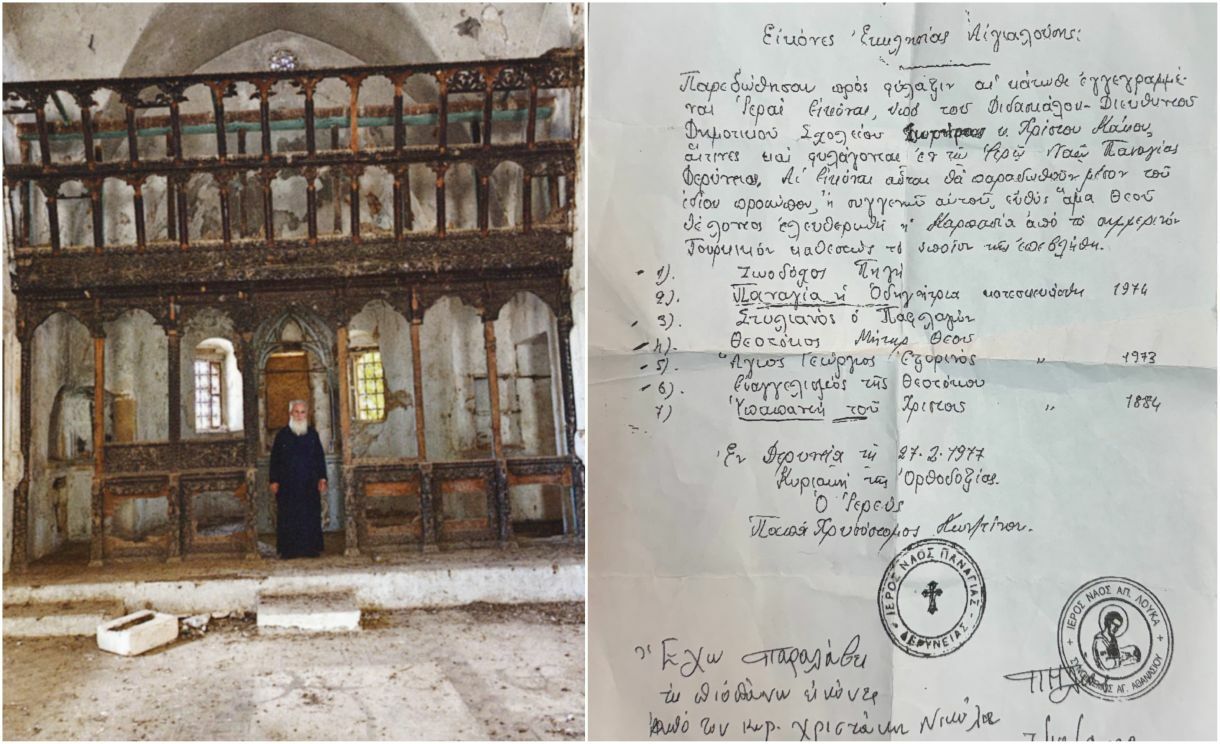 Εἰκόνες Ἐκκλησίας Αἰγιαλούσης:
Παρεδώθησαν πρὸς φύλαξιν αἱ κάτωθι ἐγγεγραμμέ-
ναι Ἱεραὶ Εἰκόναι, ὑπὸ τοῦ Διδασκάλου-Διευθυντοῦ
Δημοτικοῦ Σχολείου κ. Χρίστου
αἵτινες καὶ φυλάγονται ἐν τῷ Ἱερῷ Ναῷ Παναγίας
Δερύνειας. Αἱ Εἰκόναι αὗται θὰ παραδωθοῦν μέσον τοῦ
ἰδίου προσώπου, ἢ συγγενοῦς αὐτοῦ, εὐθὺς ἅμα Θεοῦ
θέλοντος ἐλευθερωθῆ ἡ Καρπασία ἀπὸ τὸ σημερινὸν
Τουρκικὸν καθεστὼς τὸ ὁποῖον τῆς ἐπεβλήθη.
1). Ζωοδόχος Πηγή
2). Παναγία ἡ Ὁδηγήτρια κατεσκευάσθη 1974
3). Στυλιανὸς ὁ Παφλαγών
4). Θεοτόκος Μήτηρ Θεοῦ
5). Ἅγιος Γεώργιος Ἐξορινὸς " 1973
6). Εὐαγγελισμὸς τῆς Θεοτόκου
7) Ὑπαπαντὴ τοῦ Χριστοῦ " 1884
Ἐν Δερυνείᾳ τῇ 27.2.1977
Κυριακὴ τῆς Ὀρθοδοξίας.
Ὁ Ἱερεύς
Παπᾶ Χρυσόστομος
ΙΕΡΟΣ ΝΑΟΣ ΠΑΝΑΓΙΑΣ
ΔΕΡΥΝΕΙΑΣ
ΙΕΡΟΣ ΝΑΟΣ ΑΠ. ΛΟΥΚΑ
ΑΓ. ΑΘΑΝΑΣΙΟΥ
Ἔχω παραλάβει
εἰκόνες
ἀπὸ τον κυρ. Χριστάκη Νικόλα